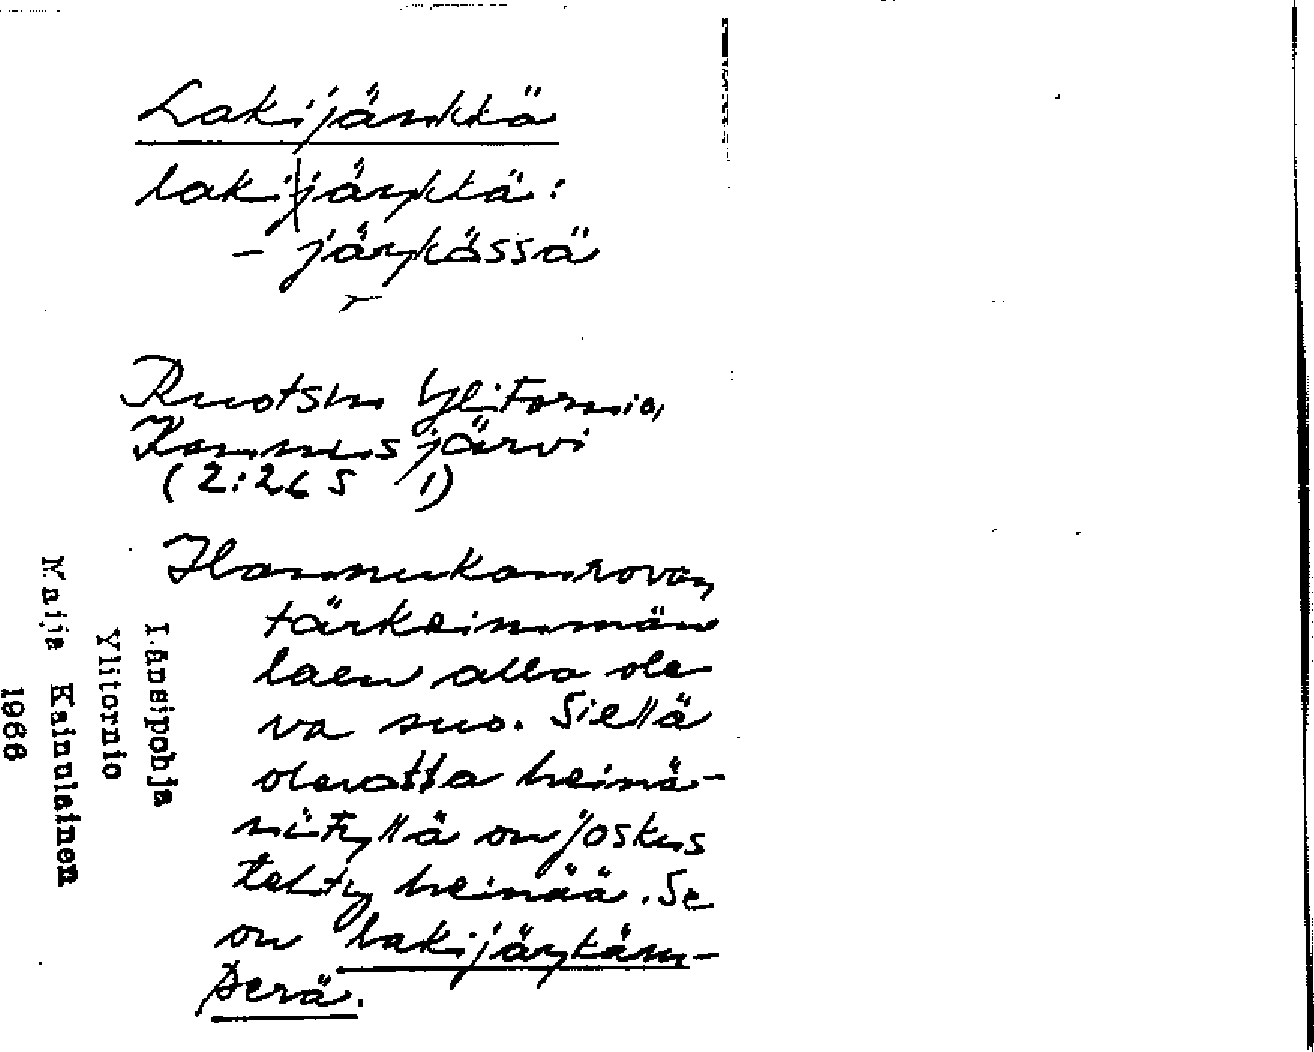 Lakijänkkä
laki|jäŋkkä:
- jäŋkässä
Ruotsin Ylitornio,
Kannusjärvi
(2:26 S 1)
Hannukanrovan
tärkeimmän
laen alla ole
va suo. Siellä
olevatta heinä-
niityllä on joskus
tehty heinää. Se
on lakijäŋkäm-
perä.
Länsipohja
Ylitornio
Maija Kainulainen
1966